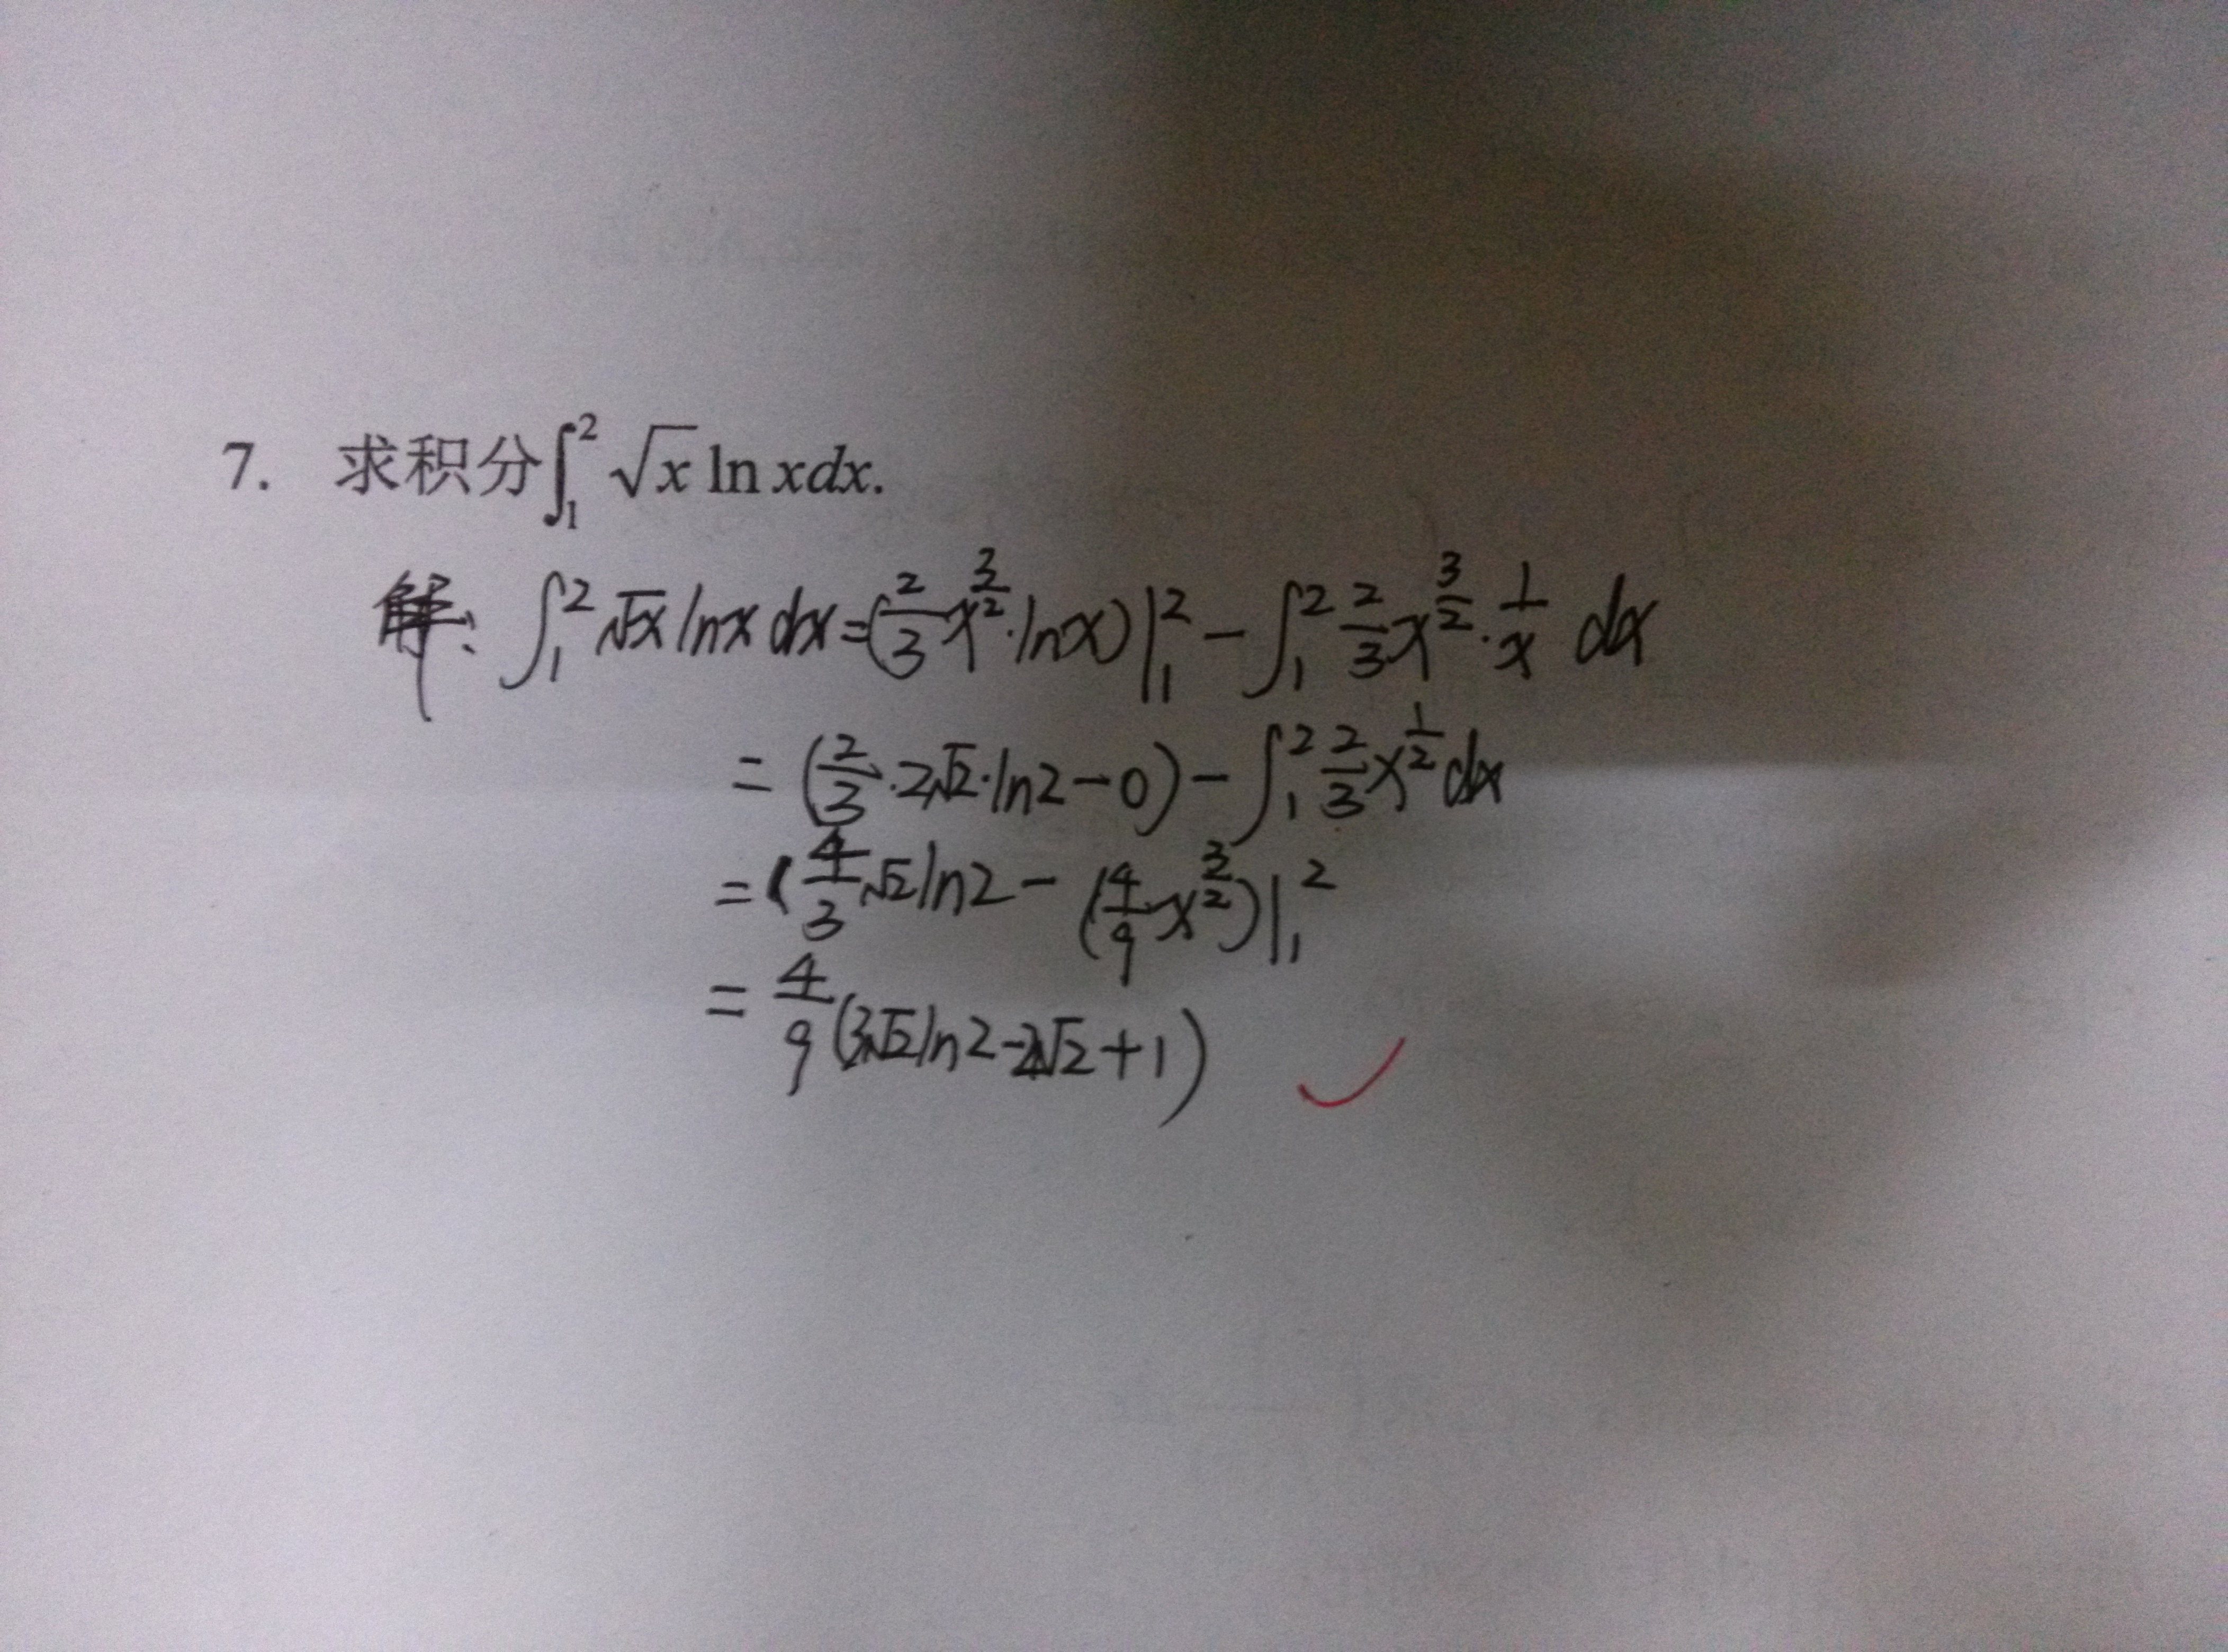 7. 求积分∫₁² √x ln x dx.
解: ∫₁² √x ln x dx = (2/3 x^(3/2) · ln x)|₁² − ∫₁² 2/3 x^(3/2) · 1/x dx
= (2/3 · 2√2 · ln2 − 0) − ∫₁² 2/3 x^(1/2) dx
= ( 4/3 √2 ln2 − (4/9 x^(3/2))|₁²
= 4/9 (3√2 ln2 − 2√2 + 1)